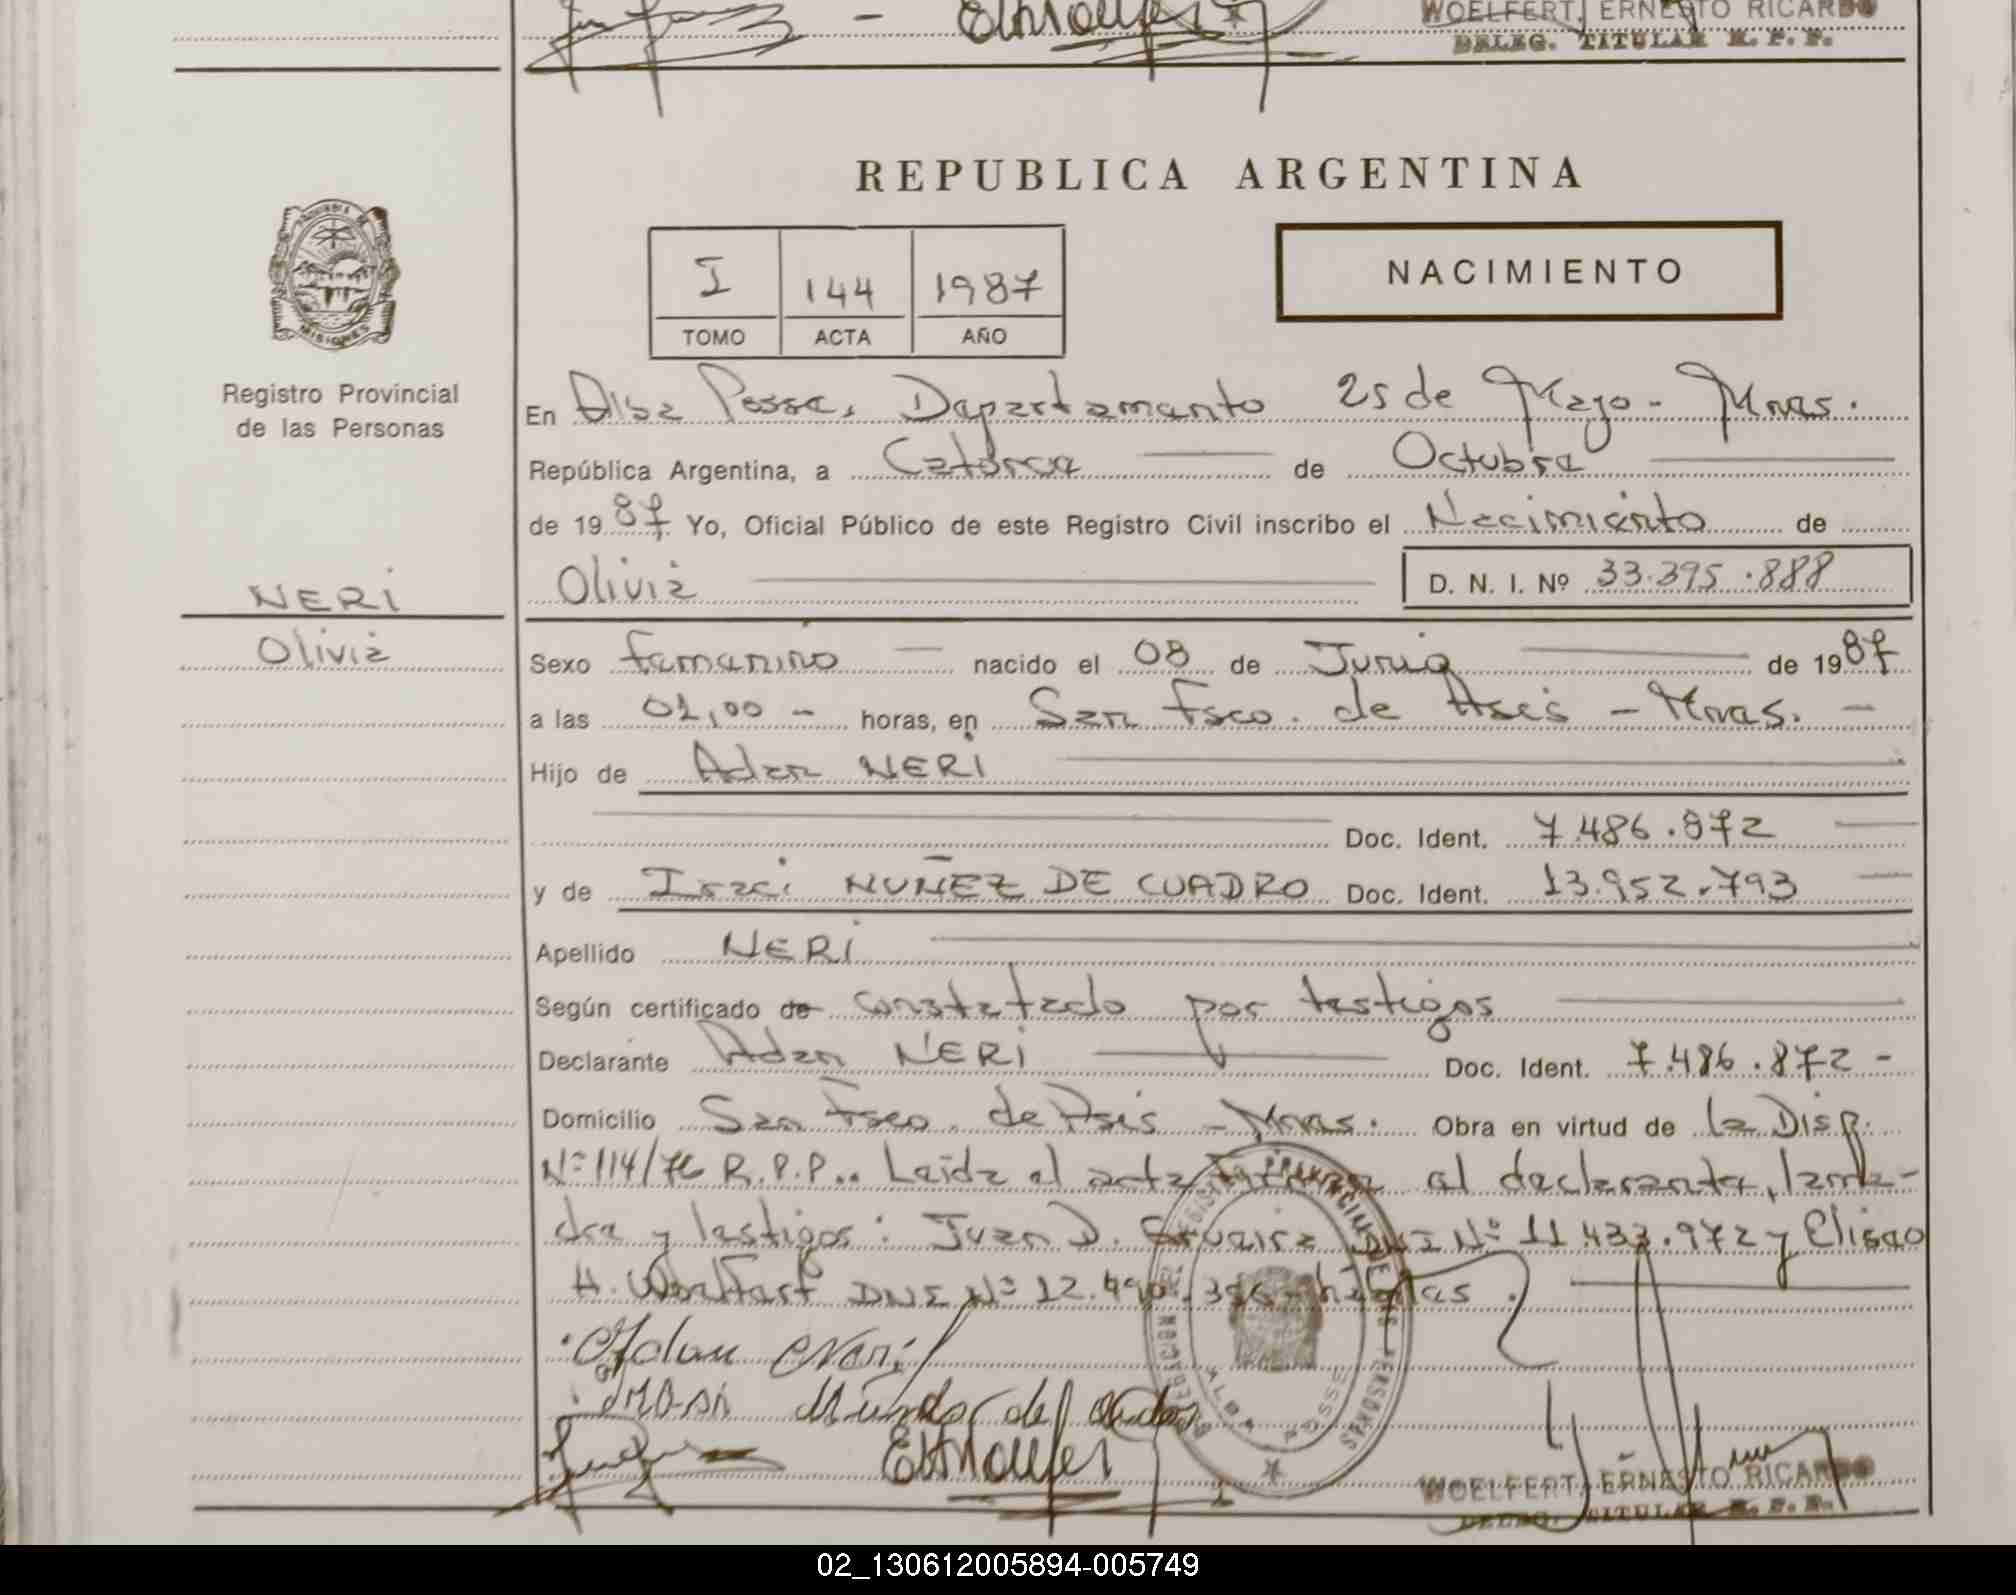 WOELFERT, ERNESTO RICARDO
DELEG. TITULAR R. P. P.
REPUBLICA ARGENTINA
PROVINCIA DE
MISIONES
Registro Provincial
de las Personas
I 144 1987
TOMO ACTA AÑO
NACIMIENTO
En Alba Posse, Departamento 25 de Mayo - Mnes.
República Argentina, a Catorce de Octubre
de 1987 Yo, Oficial Público de este Registro Civil inscribo el Nacimiento de
NERI
Olivia D. N. I. Nº 33.395.888
Olivia
Sexo femenino nacido el 08 de Junio de 1987
a las 01,00 - horas, en San Fsco. de Asis - Mnes. -
Hijo de Adan NERI
Doc. Ident. 7.486.872
y de Iraci NUÑEZ DE CUADRO Doc. Ident. 13.952.793
Apellido NERI
Según certificado de constatado por testigos
Declarante Adan NERI Doc. Ident. 7.486.872 -
Domicilio San Fsco. de Asis - Mnes. Obra en virtud de la Disp.
Nº 114/76 R.P.P.. Leida el acta firman el declarante, la ma-
dre y testigos: Juan D. DNI Nº 11.433.972 y Eliseo
H. DNI Nº 12.490.
Adan Neri
WOELFERT, ERNESTO RICARDO
DELEG. TITULAR R. P. P.
ALBA POSSE
02_130612005894-005749